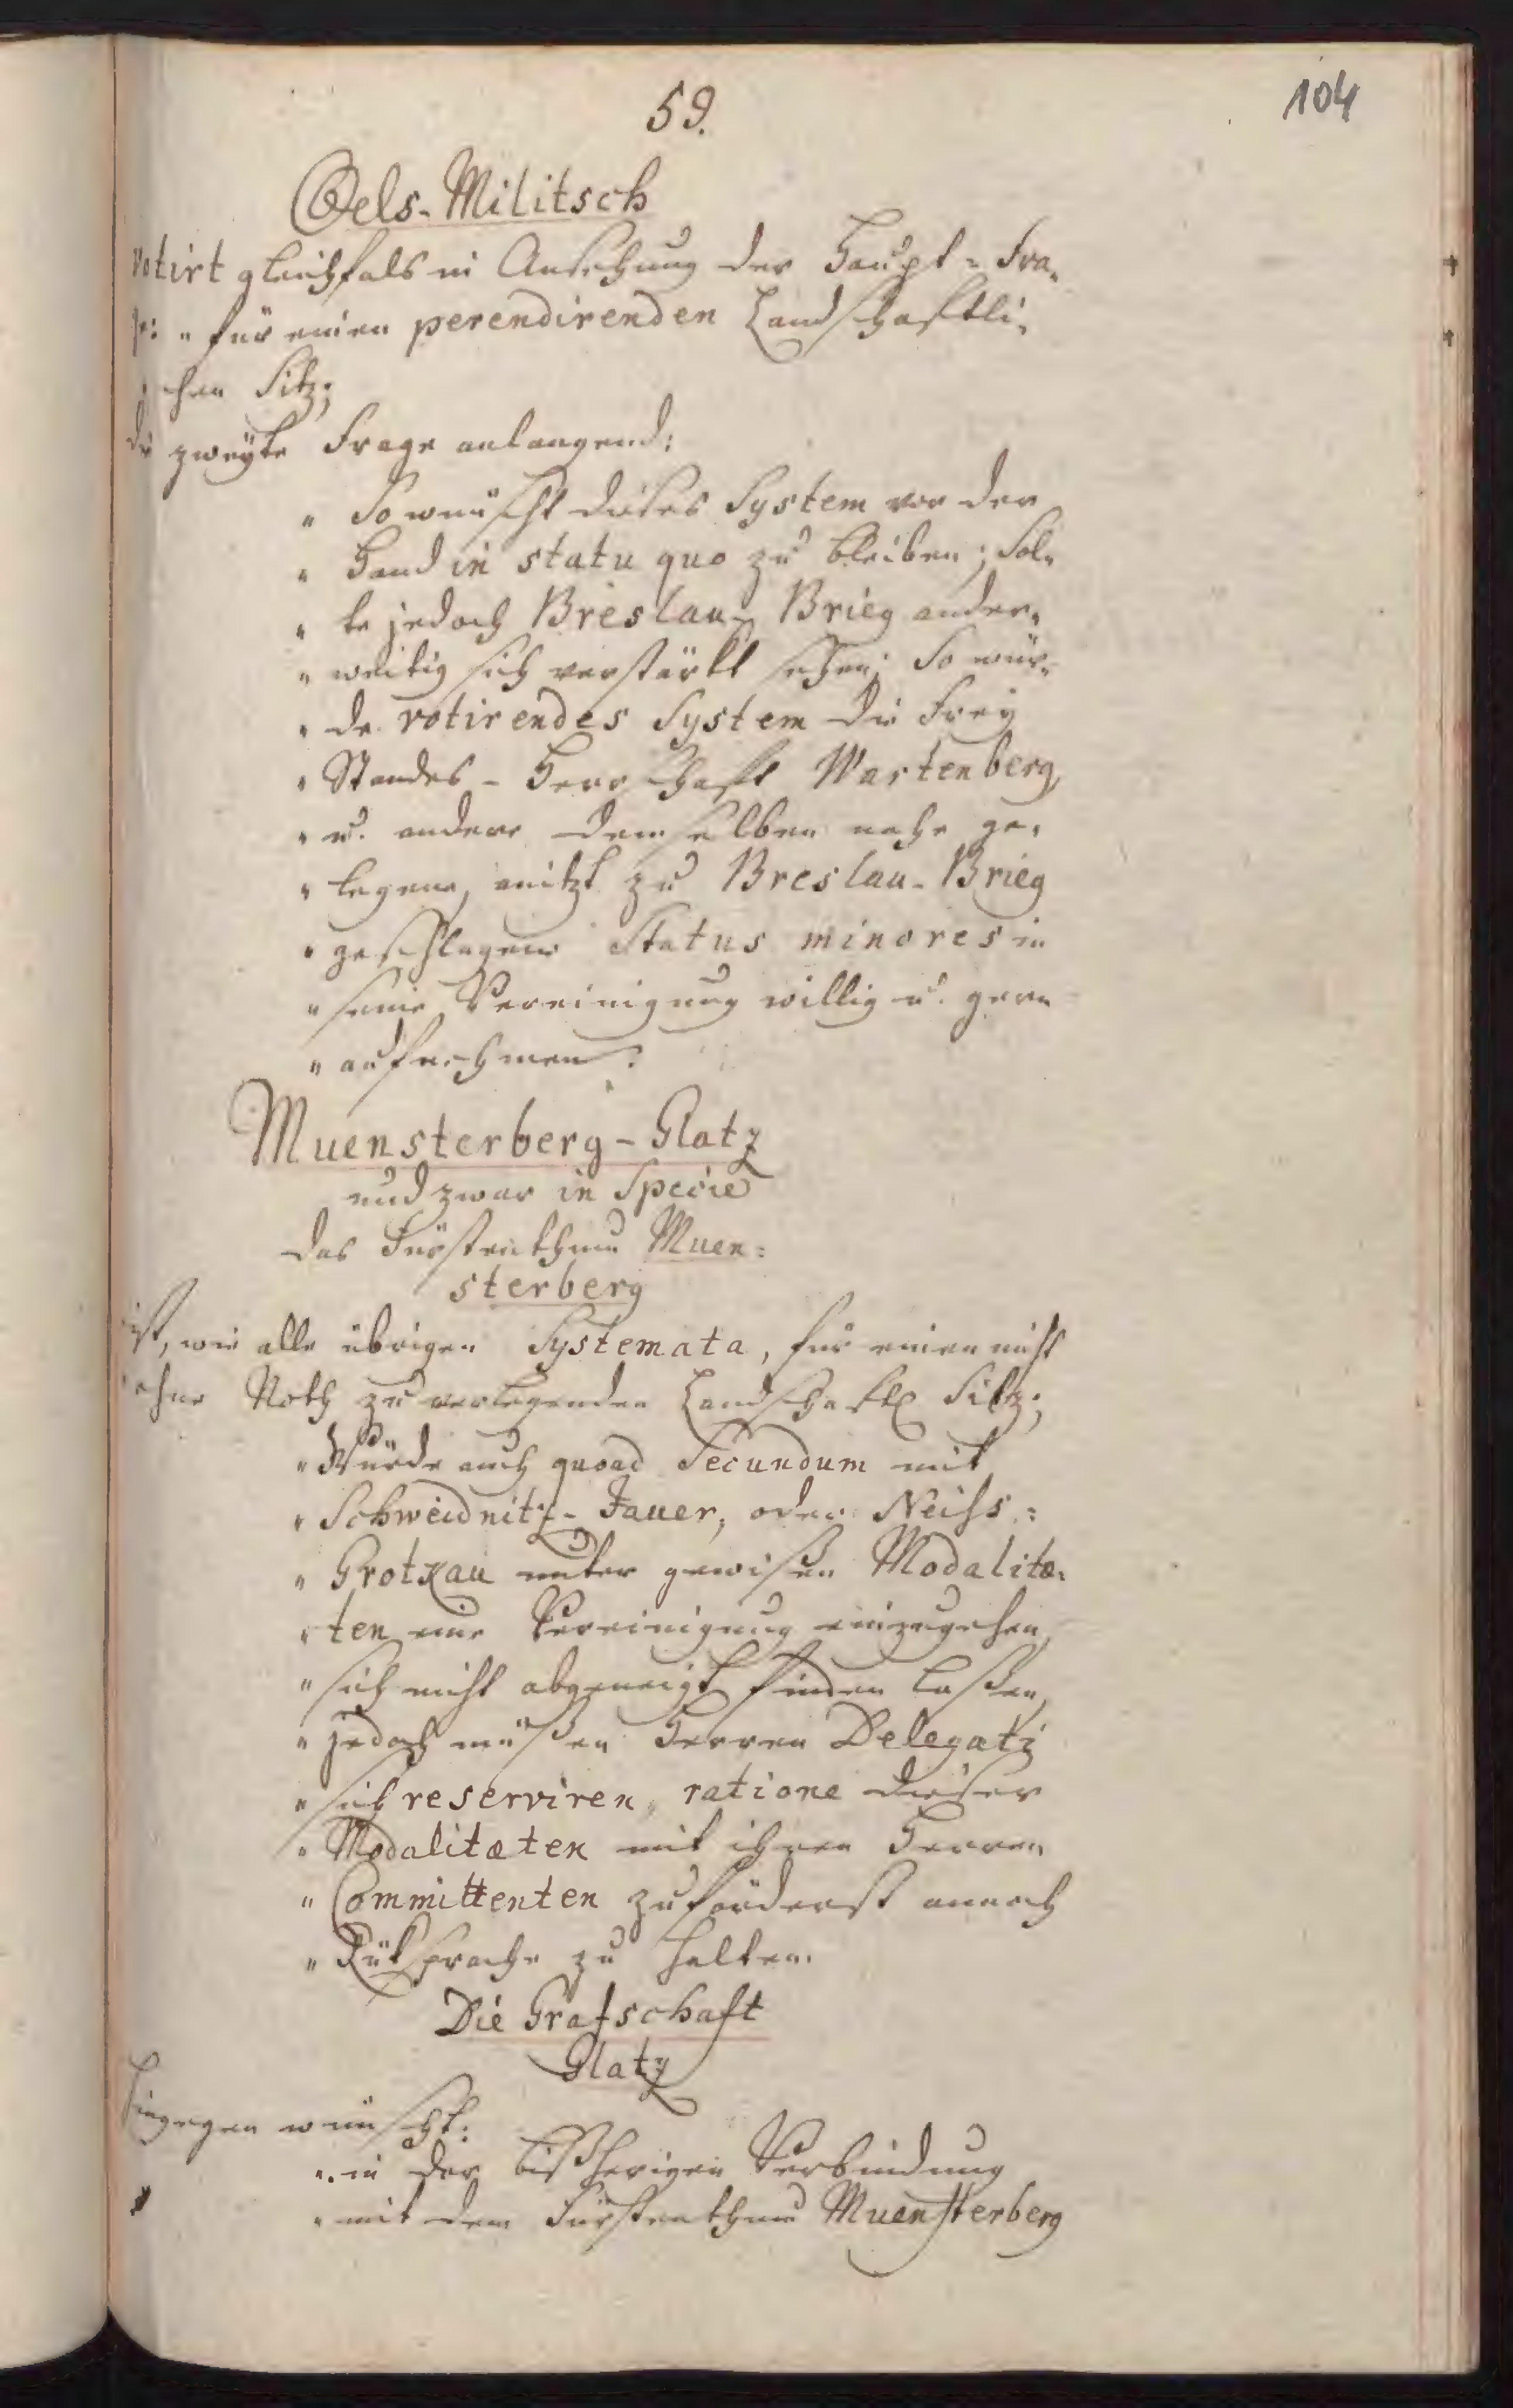 59.
104
Oels-Militsch
votirt gleichfals in Ansehung der Haupt-Fra-
ge: " für einen perendirenden Landschaftli-
chen Sitz;
die zweyte Frage anlangend:
" So wünscht dieses System vor der
" Hand in statu quo zu bleiben; Sol-
" te jedoch Breslau-Brieg ander-
" weitig sich verstärkt sehen; So wür-
" de votirendes System die Frey
" Standes-Herrschaft Wartenberg,
" u. andere demselben nahe ge-
" legene, anitzt zu Breslau-Brieg
" geschlagene Status minores in
" seine Vereinigung willig u. gern
" aufnehmen.
Muensterberg-Glatz
und zwar in Specie
das Fürstenthum Muen=
sterberg
ist, wie alle übrigen Systemata, für einen nicht
ohne Noth zu verlegenden Landschaftl. Sitz;
" Würde auch quoad Secundum mit
" Schweidnitz-Jauer, oder Neiss=
" Grotkau unter gewißen Modalitæ-
" ten eine Vereinigung einzugehen,
" sich nicht abgeneigt finden laßen,
" jedoch müßen Herren Delegati
" sich reserviren, ratione dieser
" Modalitæten mit ihren Herren
" Committenten zuförderst annoch
" Rüksprache zu halten.
Die Grafschaft
Glatz
hingegen wünscht:
" in der bißherigen Verbindung
" mit dem Fürstenthum Muensterberg